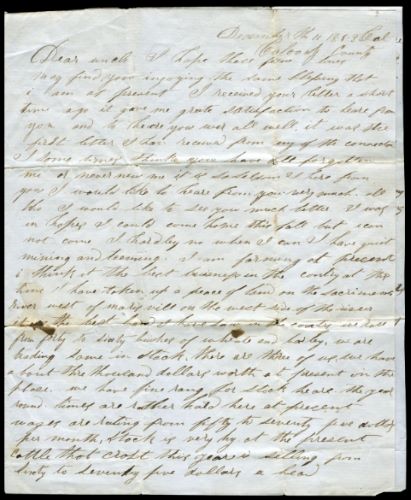 December th 11 1853 Cal
Colusa County
Dear uncle I hope these few lines
may find you injoying the same blesing that
i am at present I received your letter a short
time ago it gave me grate sattisfaction to heare from
you and to heare you wer all well. it was the
first letter I have receivd from any of the connection
I some times think you have all forgotten
me or never new me it is seldom I here from
you I would like to heare from you very much. all
tho I would like to see you much better I was
in hopes I could come home this fall but i can
not come I hardley no when I can I have quit
mining and teeming. I am farming at present
i think it the best buisness in the contry at this
time I have taken up a peace of land on the sacrimento
River west of marisvill on the west side of the river
it is the best land I have saw in the contry we rase
from forty to sixty bushes of wheate and barley, we are
trading some in stock, there are three of us, we have
a bout three thousand dollars worth at present in the
place. we have fine rang for stock heare the year
round times are rather hard here at present
wages are rating from fifty to seventy five dollars
per month, stock is very hy at the present
cattle that crost this year is selling from
sixty to seventy five dollars a head